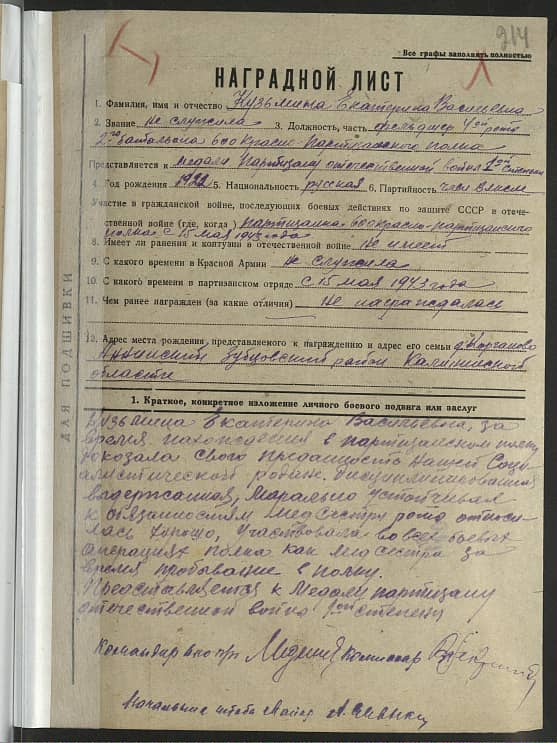 214
Все графы заполнять полностью
НАГРАДНОЙ ЛИСТ
1. Фамилия, имя и отчество Кузьмина Екатерина Васильевна
2. Звание не служила 3. Должность, часть фельдшер 4ой роты
2го батальона 600 красно-партизанского полка
Представляется к медали Партизану отечественной войны 1ой степени
4. Год рождения 1922 5. Национальность русская 6. Партийность член влксм
Участие в гражданской войне, последующих боевых действиях по защите СССР и отече-
ственной войне (где, когда) партизанка 600 красно-партизанского
полка с 15 мая 1943 года
8. Имеет ли ранения и контузии в отечественной войне не имеет
9. С какого времени в Красной Армии не служила
10. С какого времени в партизанском отряде с 15 мая 1943 года
11. Чем ранее награжден (за какие отличия) не награждалась
12. Адрес места рождения, представляемого к награждению и адрес его семьи
Зубцовский район Калининской
области
ДЛЯ ПОДШИВКИ
1. Краткое, конкретное изложение личного боевого подвига или заслуг
Кузьмина Екатерина Васильевна, за
время нахождения в партизанском полку
показала свою преданность нашей Соци-
алистической родине. Дисциплинированная
выдержанная, Марально устойчивая
к обязанностям медсестры роты относи-
лась хорошо, участвовала во всех боевых
операциях полка как медсестра за
время пробывание в полку.
Представляется к Медали партизану
отечественной войны 1ой степени
Командир Комиссар
Начальник штаба Майор